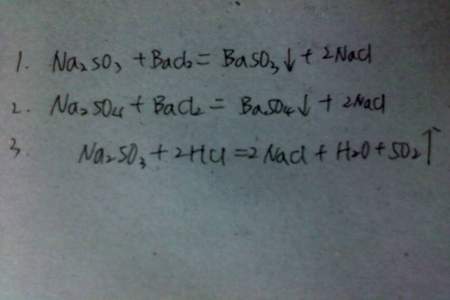 1. Na₂SO₃ + BaCl₂ = BaSO₃↓ + 2NaCl
2. Na₂SO₄ + BaCl₂ = BaSO₄↓ + 2NaCl
3. Na₂SO₃ + 2HCl = 2NaCl + H₂O + SO₂↑